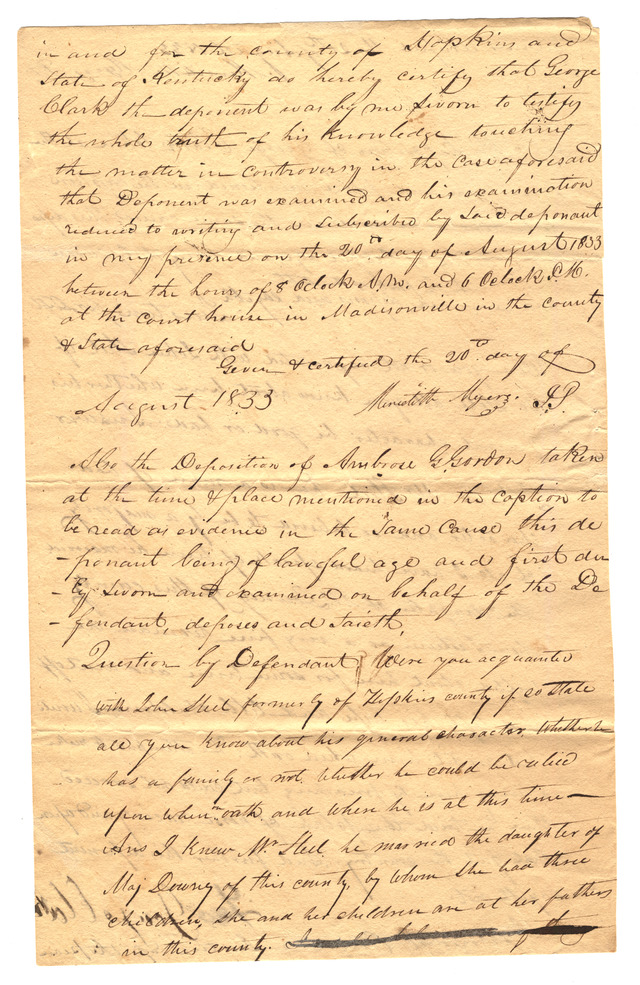 in and for the county of Hopkins and
State of Kentucky do hereby certify that George
Clark the deponent was by me Sworn to testify
the whole truth of his Knowledge touching
the matter in controversy in the case aforesaid
that Deponent was examined and his examination
reduced to writing and Subscribed by Said deponant
in my presence on the 20th day of August 1833
between the hours of 8 Oclock A.M. and 6 Oclock P.M.
at the court house in Madisonville in the county
& State aforesaid
Given & certified the 20th day of
August 1833 Meredith Myers JP
Also the Deposition of Ambrose G. Gordon taken
at the time & place mentioned in the caption to
be read as evidence in the Same Cause this de
-ponant being of lawful age and first du
-ly Sworn and examined on behalf of the De
-fendant, deposes and Saieth,
Question by Defendant Were you acquanted
with John Steel formerly of Hopkins county if so state
all you Know about his general character, Whether he
has a family or not. Whether he could be relied
upon when on oath and where he is at this time—
Ans I Knew Mr Steel he married the daughter of
Maj Downey of this county, by whom She had three
children, She and her children are at her fathers
in this county.